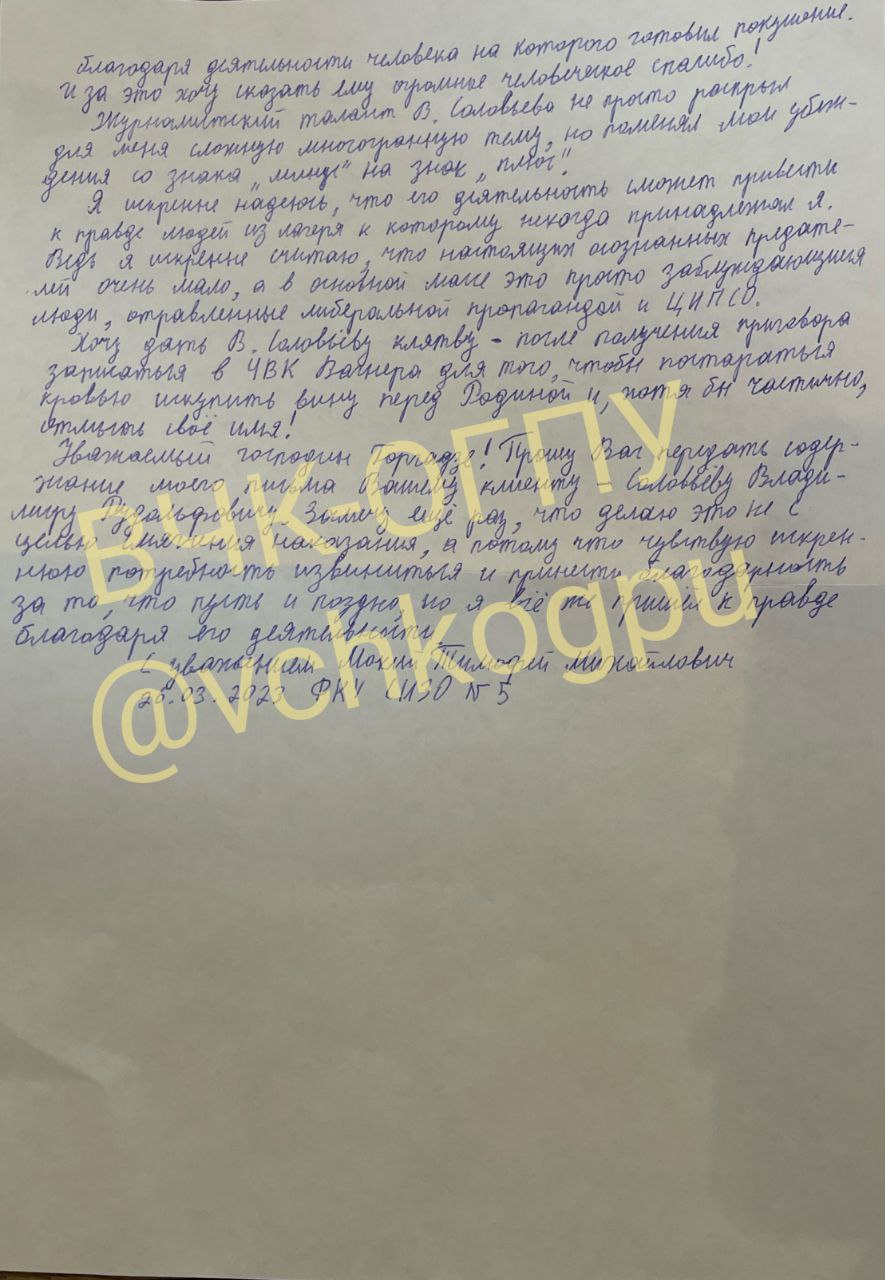 благодаря деятельности человека на которого готовил покушение.
И за это хочу сказать ему огромное человеческое спасибо!
Журналистский талант В. Соловьева не просто раскрыл
для меня сложную многогранную тему, но поменял мои убеж-
дения со знака „минус“ на знак „плюс“.
Я искренне надеюсь, что его деятельность сможет привести
к правде людей из лагеря к которому некогда принадлежал я.
Ведь я искренне считаю, что настоящих осознанных предате-
лей очень мало, а в основной массе это просто заблуждающиеся
люди, отравленные либеральной пропагандой и ЦИПСО.
Хочу дать В. Соловьёву клятву - после получения приговора
записаться в ЧВК Вагнера для того, чтобы постараться
кровью искупить вину перед Родиной и, хотя бы частично,
отмыть своё имя!
Уважаемый господин Горгадзе! Прошу Вас передать содер-
жание моего письма Вашему клиенту - Соловьёву Влади-
миру Рудольфовичу. Замечу ещё раз, что делаю это не с
целью смягчения наказания, а потому что чувствую искрен-
нюю потребность извиниться и принести благодарность
за то, что пусть и поздно, но я всё же пришёл к правде
благодаря его деятельности.
С уважением Мокий Тимофей Михайлович
26.03.2023 ФКУ СИЗО №5
ВЧК-ОГПУ
@vchkogpu